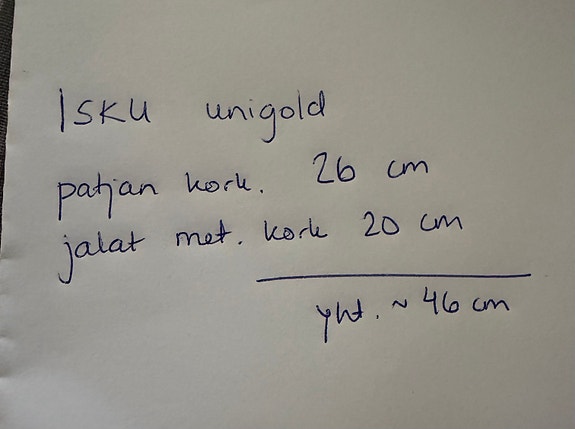 ISKU unigold
patjan kork. 26 cm
jalat met. kork 20 cm
yht. ~ 46 cm